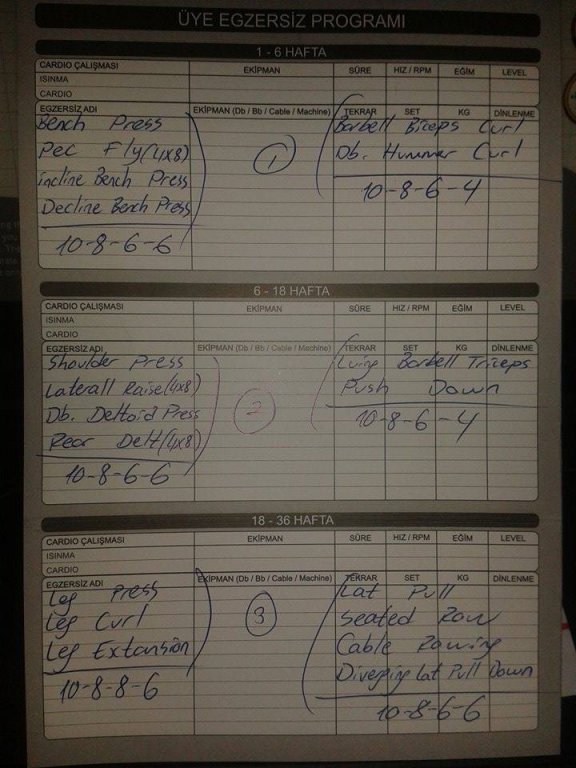 ÜYE EGZERSİZ PROGRAMI
1 - 6 HAFTA
CARDIO ÇALIŞMASI EKİPMAN SÜRE HIZ / RPM EĞİM LEVEL
ISINMA
CARDIO
EGZERSİZ ADI EKİPMAN (Db / Bb / Cable / Machine) TEKRAR SET KG DİNLENME
Bench Press
Pec Fly (4x8)
incline Bench Press
Decline Bench Press
10-8-6-6
1
Barbell Biceps Curl
Db. Hummer Curl
10-8-6-4
6 - 18 HAFTA
CARDIO ÇALIŞMASI EKİPMAN SÜRE HIZ / RPM EĞİM LEVEL
ISINMA
CARDIO
EGZERSİZ ADI EKİPMAN (Db / Bb / Cable / Machine) TEKRAR SET KG DİNLENME
Shoulder Press
Laterall Raise (4x8)
Db. Deltoid Press
Rear Delt (4x8)
10-8-6-6
2
Lying Barbell Triceps
Push Down
10-8-6-4
18 - 36 HAFTA
CARDIO ÇALIŞMASI EKİPMAN SÜRE HIZ / RPM EĞİM LEVEL
ISINMA
CARDIO
EGZERSİZ ADI EKİPMAN (Db / Bb / Cable / Machine) TEKRAR SET KG DİNLENME
Leg Press
Leg Curl
Leg Extansion
10-8-8-6
3
Lat Pull
Seated Row
Cable Rowing
Diverging Lat Pull Down
10-8-6-6